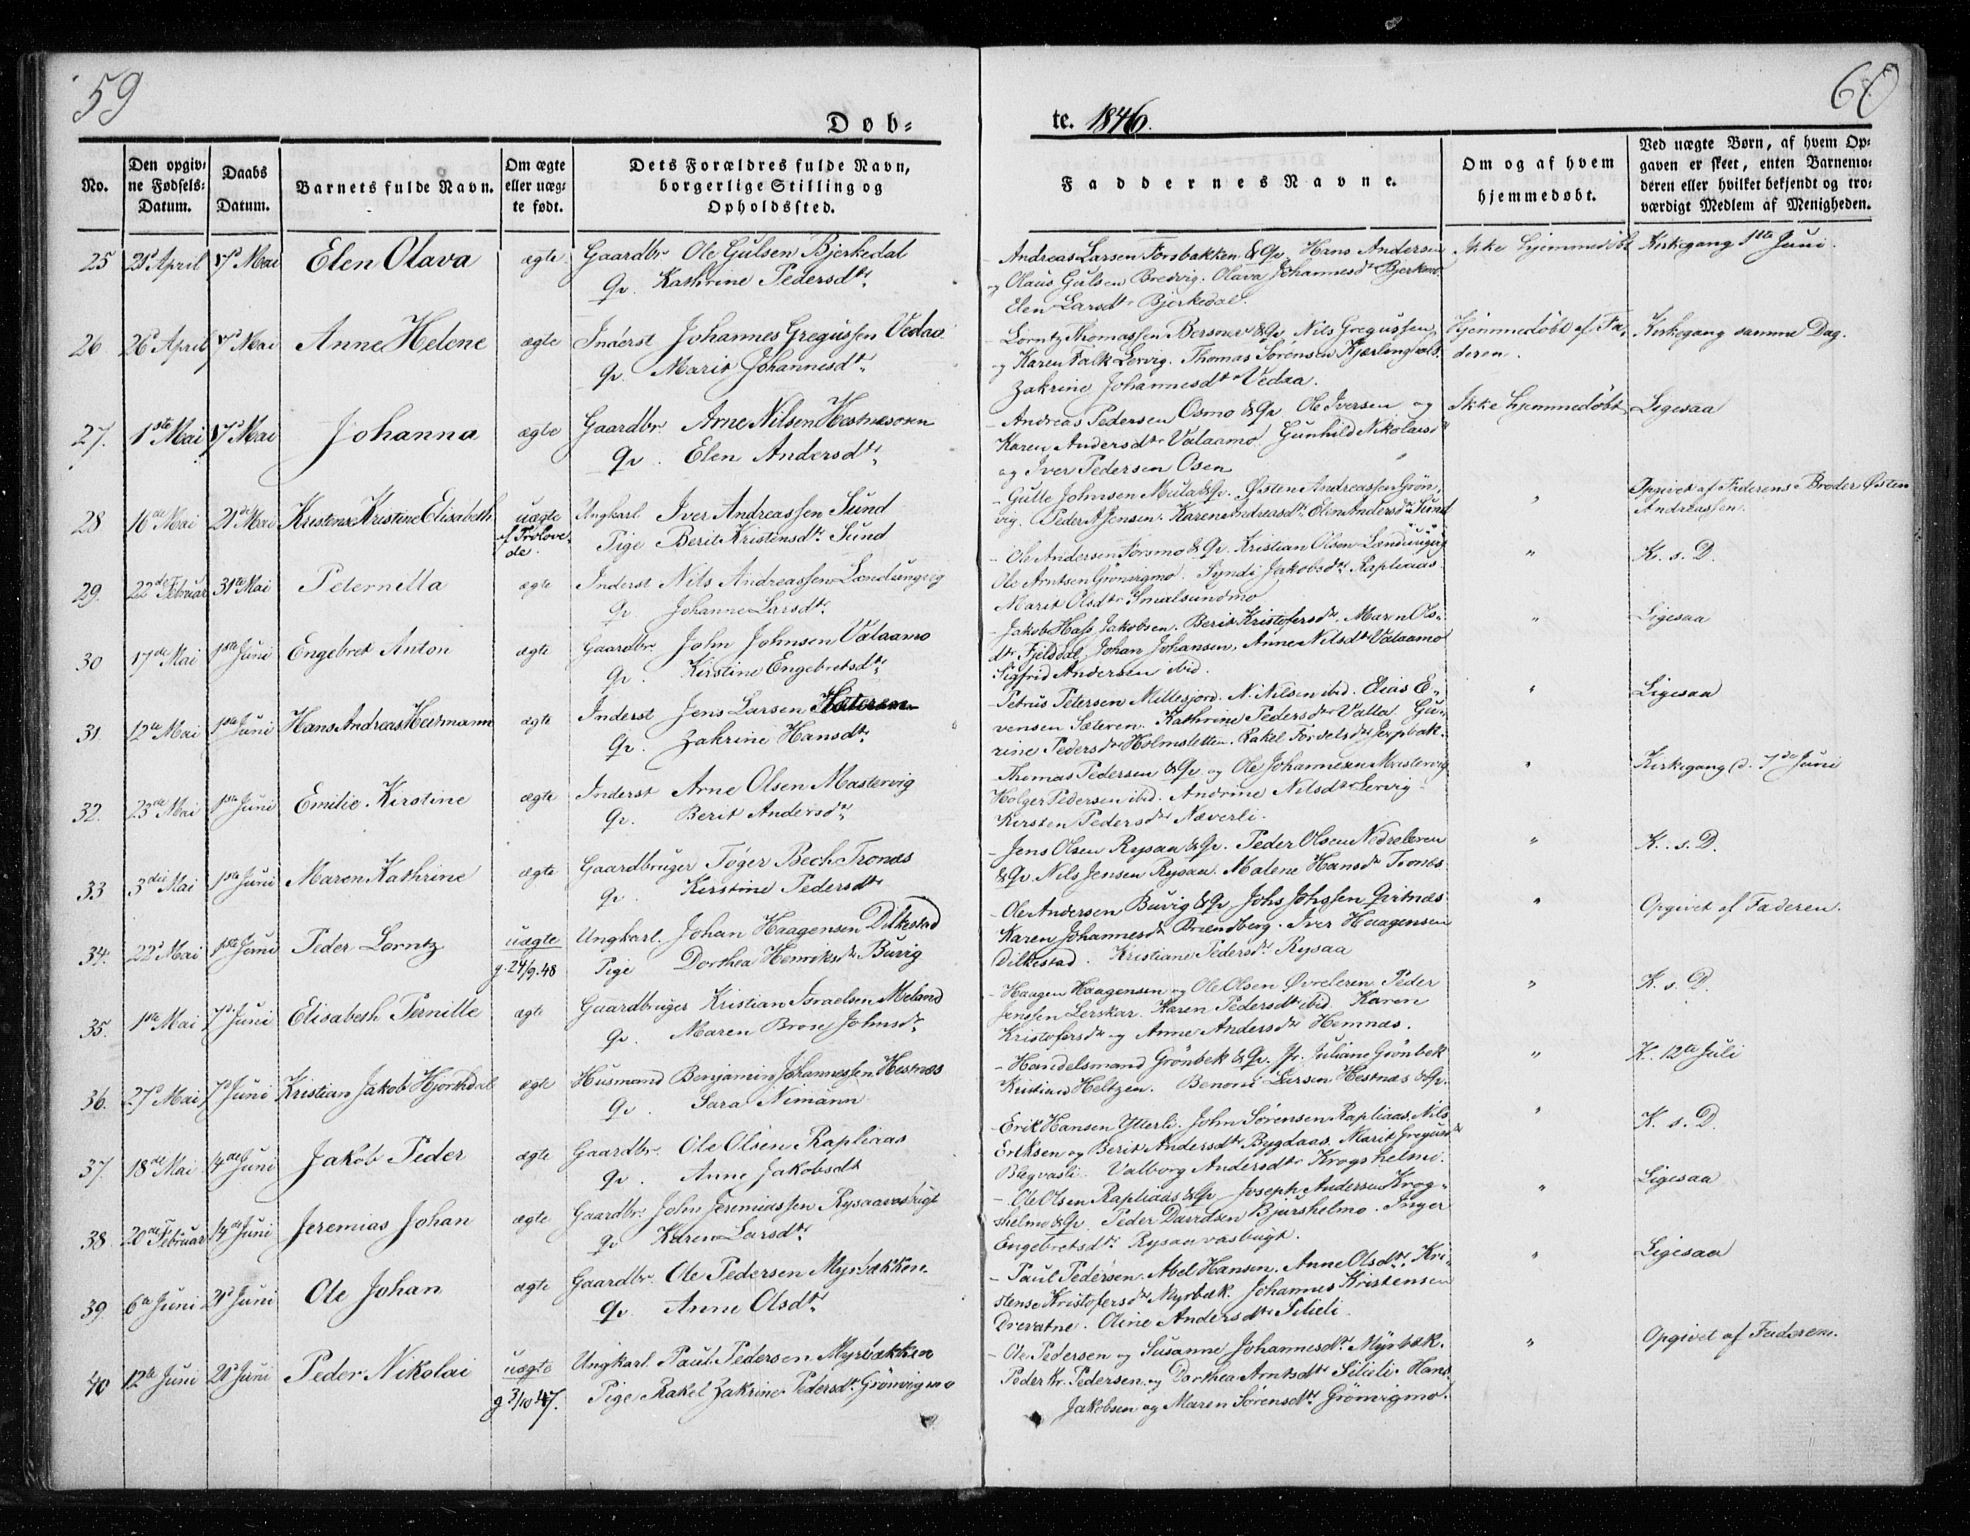 59
60
Døb-
te. 1846.
No.
Den opgiv-
ne Fødsels-
Datum.
Daabs
Datum.
Barnets fulde Navn.
Om ægte
eller uæg-
te født.
Dets Forældres fulde Navn,
borgerlige Stilling og
Opholdssted.
Faddernes Navne.
Om og af hvem
hjemmedøbt.
Ved uægte Børn, af hvem Op-
gaven er skeet, enten Barnemo-
deren eller hvilket bekjendt og tro-
værdigt Medlem af Menigheden.
25 21de April 17de Mai Elen Olava ægte Gaardbr. Ole Gulsen Bjerkedal
Qv. Kathrine Pedersdtr
Andreas Larsen Forsbakken & Qv. Hans Andersen
og Olaus Gulsen Bredvig. Olava Johannesdtr
Elen Larsdtr Bjerkedal.
Ikke hjemmedøbt Kirkegang 1ste Juni.
26 26de April 17de Mai Anne Helene ægte Inderst Johannes Gregussen Vedaa
Qv. Marit Johannesdtr
Lorntz Thomassen & Qv. Nils Gregussen
og Karen Falk Lervig. Thomas Sørensen
Zakrine Johannesdtr Vedaa.
Hjemmedøbt af Fa-
deren.
Kirkegang samme Dag.
27. 1ste Mai 17de Mai Johanna ægte Gaardbr. Arne Nilsen Hestnesoren
Qv. Elen Andersdtr
Andreas Pedersen Osmo & Qv. Ole Iversen og
Karen Andersdtr Valaamo Gunhild Nikolaisdtr
og Iver Pedersen Osen
Ikke hjemmedøbt Ligesaa
28 16de Mai 21de Mai Kristense Kristine Elisabeth uægte
af Trolove-
de.
Ungkarl Iver Andreassen Sund
Pige Berit Kristensdtr Sund
- Gulle Johnsen Mula & Qv. Østen Andreassen Grøn-
vig. Peder A Jensen. Karen Andreasdtr Elen Andersdtr Sund
" Opgivet af Faderens Broder Østen
Andreassen.
29. 22de Februar 31te Mai Peternilla ægte Inderst Nils Andreassen Lændingvig
Qv Johanne Larsdtr
- Ole Andersen Forsmo & Qv. Kristian Olsen
Ole Arntsen Grønvigmo. Syndi Jakobsdtr Rapliaas
Marit Olsdtr Smalsundmo
" K. s. D.
30 17de Mai 1ste Juni Engebret Anton ægte Gaardbr. John Johnsen Valaamo
Qv. Kirstine Engebretsdtr
- Jakob Hass Jakobsen. Berit Kristofersdtr, Maren Ols-
dtr Fjeldal Johan Johansen, Anne Nilsdtr Valaamo
Sigfrid Andersen ibid.
" Ligesaa
31. 12te Mai 1ste Juni Hans Andreas Hermann ægte Inderst Jens Larsen
Qv. Zakrine Hansdtr
- Petrus Petersen Millesjord. N. Nilsen ibid. Elias E-
vensen Sæteren. Kathrine Pedersdtr Valla Gu-
rine Pedersdtr Holmsletten. Rakel
" Ligesaa
32. 23de Mai 1ste Juni Emilie Kirstine ægte Inderst Arne Olsen Mastervig
Qv. Berit Andersdtr
- Thomas Pedersen & Qv. og Ole Johannesen Mastervig
Holger Pedersen ibid. Andrine Nilsdtr Lervig
Kirsten Pedersdtr Næverli.
" Kirkegang d. 7de Juni
33 3die Mai 1ste Juni Maren Kathrine ægte Gaardbruger Tøger Bech Tronæs
Qv. Kirstine Pedersdtr
- Jens Olsen Rysaa & Qv. Peder Olsen Nedreleren
& Qv. Nils Jensen Rysaa. Malene Hansdtr
" K. s. D.
34. 22de Mai 1ste Juni Peder Lorntz uægte
g. 24/9.48
Ungkarl. Johan Haagensen Dilkestad
Pige Dorthea Henriksdtr Buvig
- Ole Andersen Buvig & Qv. Johs Johssen
Karen Johannesdtr Brændberg. Iver Haagensen
Dilkestad. Kristiane Pedersdtr Rysaa
" Opgivet af Faderen.
35. 1ste Mai 7de Juni Elisabeth Pernille ægte Gaardbruger Kristian Israelsen Meland
Qv. Maren Brose Johnsdtr
- Haagen Haagensen og Ole Olsen Øvreleren Peder
Jensen Lerskar. Karen Pedersdtr ibid Karen
Kristofersdtr og Anne Andersdtr Hemnæs.
" K. s. D.
36. 27de Mai 7de Juni Kristian Jakob Hjorthdal ægte Husmand Benjamin Johannessen Hestnæs
Qv. Sara Nimann
- Handelsmand Grønbek & Qv. Jr. Juliane Grønbek
Kristian Heltzen. Benoni Larsen Hestnæs & Qv.
" K. 12te Juli
37. 18de Mai 14de Juni Jakob Peder ægte Gaardbr. Ole Olsen Rapliaas
Qv. Anne Jakobsdtr
- Erik Hansen Ytterli. John Sørensen Rapliaas, Nils
Eriksen og Berit Andersdtr Bygdaas. Marit Gregusdtr
Valborg Andersdtr Krogshelmo.
" K. s. D.
38. 20de Februar 14de Juni Jeremias Johan ægte Gaardbr. John Jeremiassen Rysaavasbugt
Qv Karen Larsdtr
- Ole Olsen Rapliaas & Qv Joseph Andersen Krog-
shelmo & Qv. Peder Davidsen Bjurshelmo. Inger
Engebretsdtr Rysaavasbugt.
" Ligesaa
39. 6te Juni 21de Juni Ole Johan ægte Gaardbr. Ole Pedersen Myrbækken
Qv. Anne Olsdtr
- Paul Pedersen. Abel Hansen. Anne Olsdtr, Kri-
stense Kristofersdtr Myrbæk. Johannes Kristensen
Drevatne. Oline Andersdtr Silieli.
" Ligesaa
40 12te Juni 21de Juni Peder Nikolai uægte
g 3/10 47.
Ungkarl. Paul Pedersen Myrbækken
Pige Rakel Zakrine Pedersdtr Grønvigmo
- Ole Pedersen og Susanne Johannesdtr Myrbæk.
Peder Kr. Pedersen og Dorthea Arntsdtr Silieli. Hans
Jakobsen og Maren Sørensdtr Grønvigmo.
" Opgivet af Faderen.